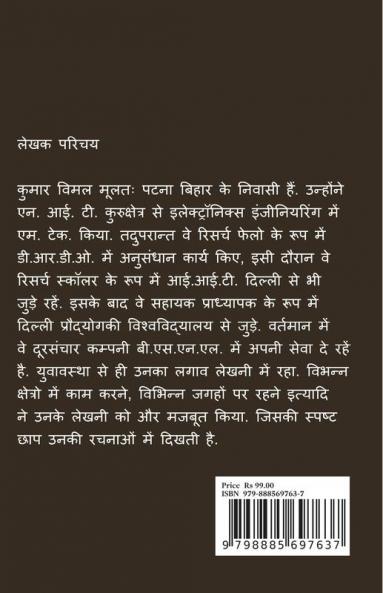 लेखक परिचय
कुमार विमल मूलतः पटना बिहार के निवासी हैं. उन्होंने
एन. आई. टी. कुरुक्षेत्र से इलेक्ट्रॉनिक्स इंजीनियरिंग में
एम. टेक. किया. तदुपरान्त वे रिसर्च फेलो के रूप में
डी.आर.डी.ओ. में अनुसंधान कार्य किए, इसी दौरान वे
रिसर्च स्कॉलर के रूप में आई.आई.टी. दिल्ली से भी
जुड़े रहें. इसके बाद वे सहायक प्राध्यापक के रूप में
दिल्ली प्रौद्योगकी विश्वविद्यालय से जुड़े. वर्तमान में
वे दूरसंचार कम्पनी बी.एस.एन.एल. में अपनी सेवा दे रहें
है. युवावस्था से ही उनका लगाव लेखनी में रहा. विभन्न
क्षेत्रो में काम करने, विभिन्न जगहों पर रहने इत्यादि
ने उनके लेखनी को और मजबूत किया. जिसकी स्पष्ट
छाप उनकी रचनाओं में दिखती है.
Price Rs 99.00
ISBN 979-888569763-7
9 798885 697637